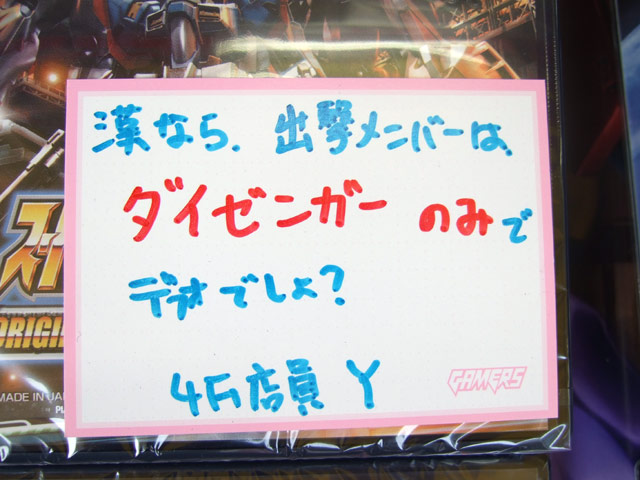 漢なら、出撃メンバーは、
ダイゼンガーのみで
デフォでしょ?
4F店員 Y
GAMERS
スー
ORIGI
MADE IN JA